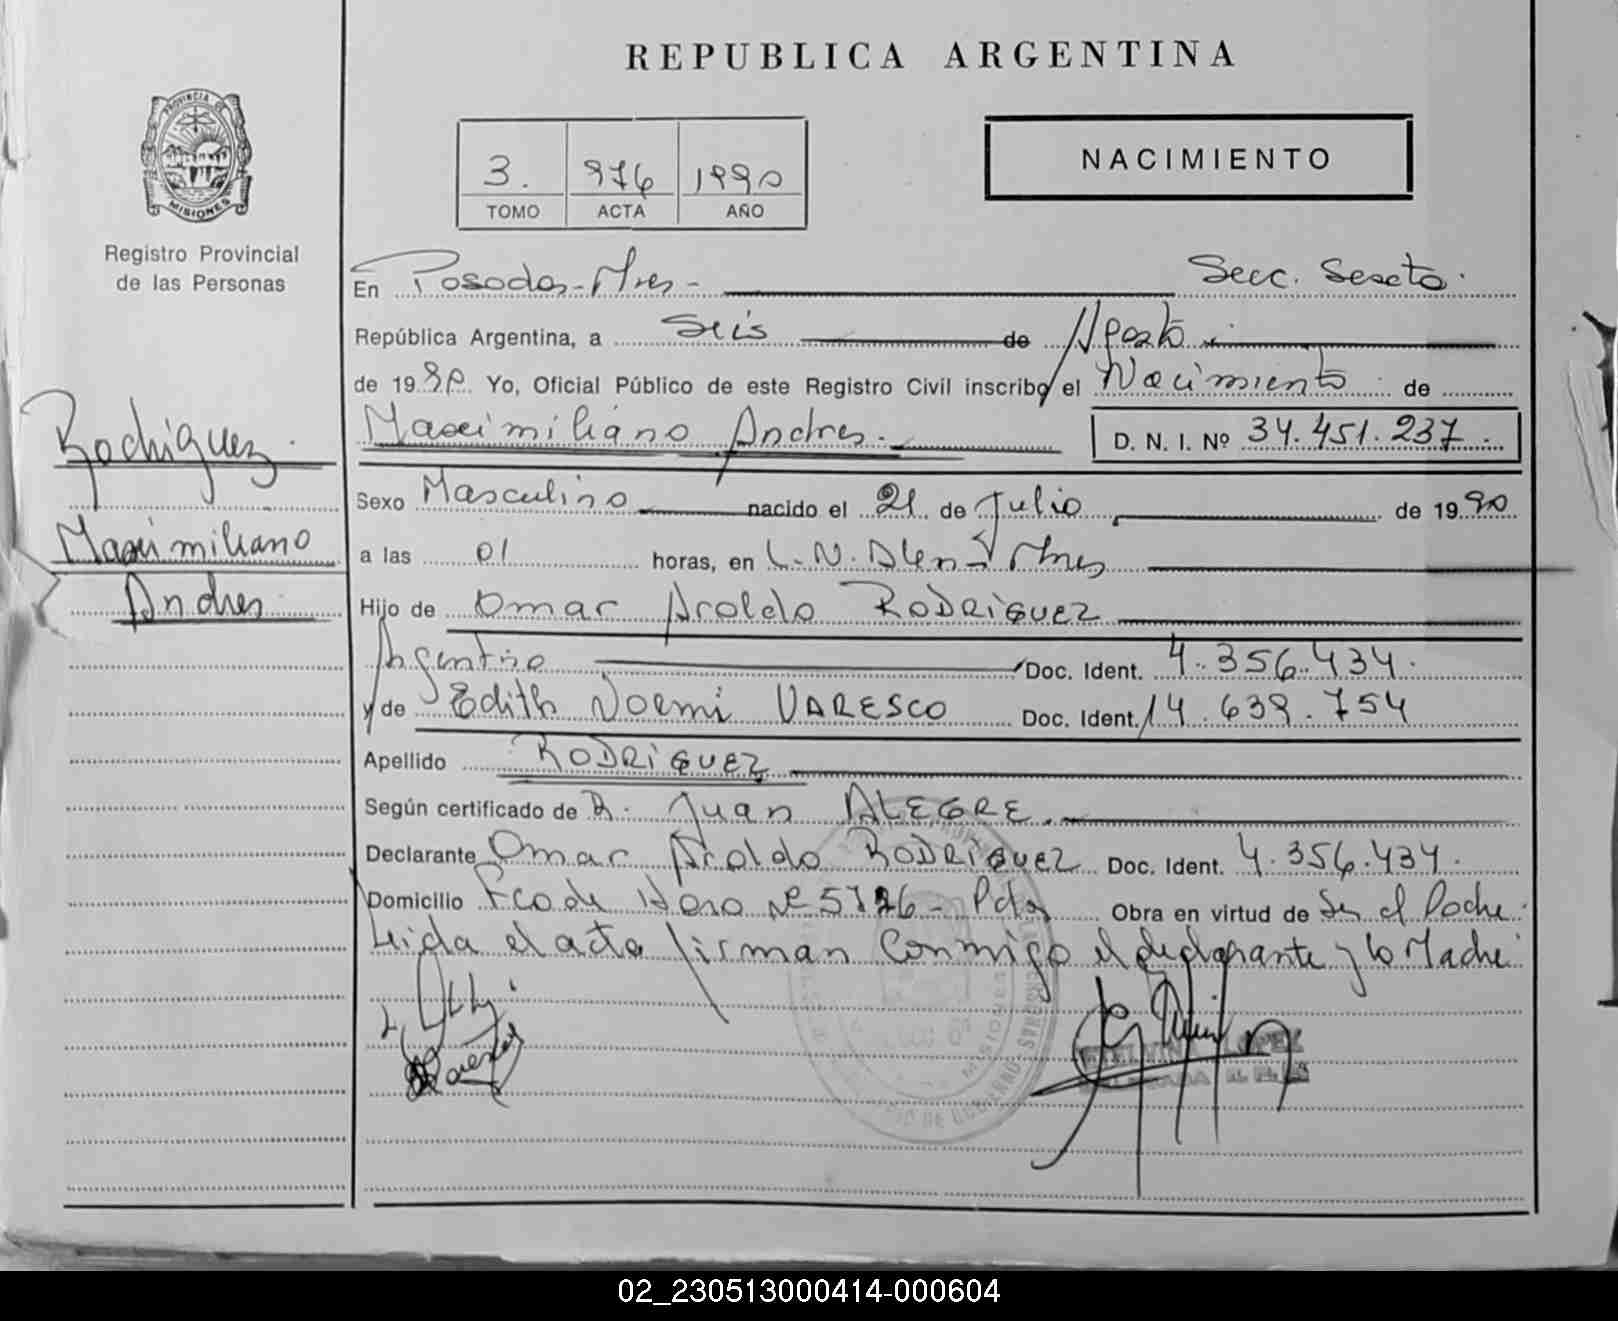 REPUBLICA ARGENTINA
PROVINCIA DE
MISIONES
Registro Provincial
de las Personas
3. 976 1990
TOMO ACTA AÑO
NACIMIENTO
En Posadas-Mnes- Secc. Sexta.
República Argentina, a Seis de Agosto
de 1990. Yo, Oficial Público de este Registro Civil inscribo el Nacimiento de
Maximiliano Andres. D. N. I. Nº 34.451.237.
Rodriguez
Maximiliano
Andres
Sexo Masculino nacido el 21 de Julio de 1990
a las 01 horas, en L.N. Alen-Mnes
Hijo de Omar Aroldo RODRIGUEZ
Argentino Doc. Ident. 4.356.434.
y de Edith Noemi VARESCO Doc. Ident. 14.639.754
Apellido RODRIGUEZ
Según certificado de Dr. Juan ALEGRE.
Declarante Omar Aroldo RODRIGUEZ Doc. Ident. 4.356.434.
Domicilio Fco de Haro Nº - Pdas Obra en virtud de Ser el Padre.
Leida el acta firman conmigo el declarante y la Madre
LOPEZ
MISIONES
02_230513000414-000604